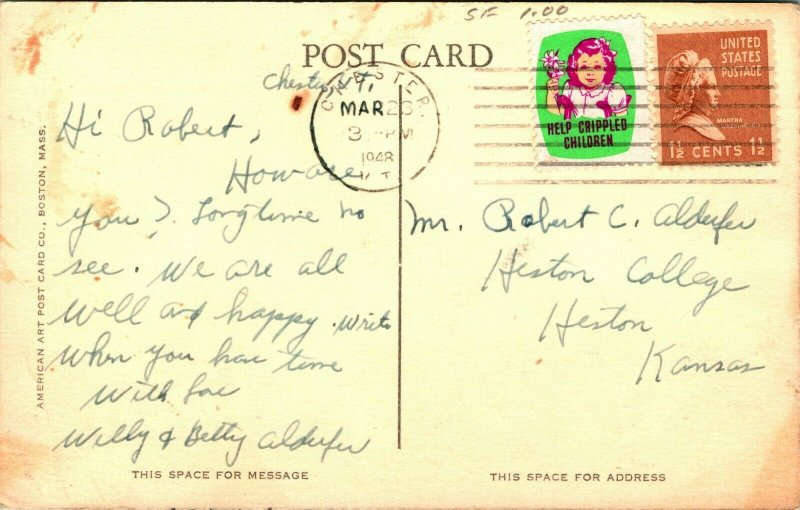 SF 1.00
POST CARD
Chester, VT.
CHESTER
MAR 23
3 - PM
1948
VT
HELP CRIPPLED
CHILDREN
UNITED
STATES
POSTAGE
MARTHA
1½ CENTS 1½
Hi Robert,
How are
you? Long time no
see. We are all
well and happy. Write
when you have time
With Love
Willy & Betty Alderfer
Mr. Robert C. Alderfer
Heston College
Heston
Kansas
AMERICAN ART POST CARD CO., BOSTON, MASS.
THIS SPACE FOR MESSAGE
THIS SPACE FOR ADDRESS